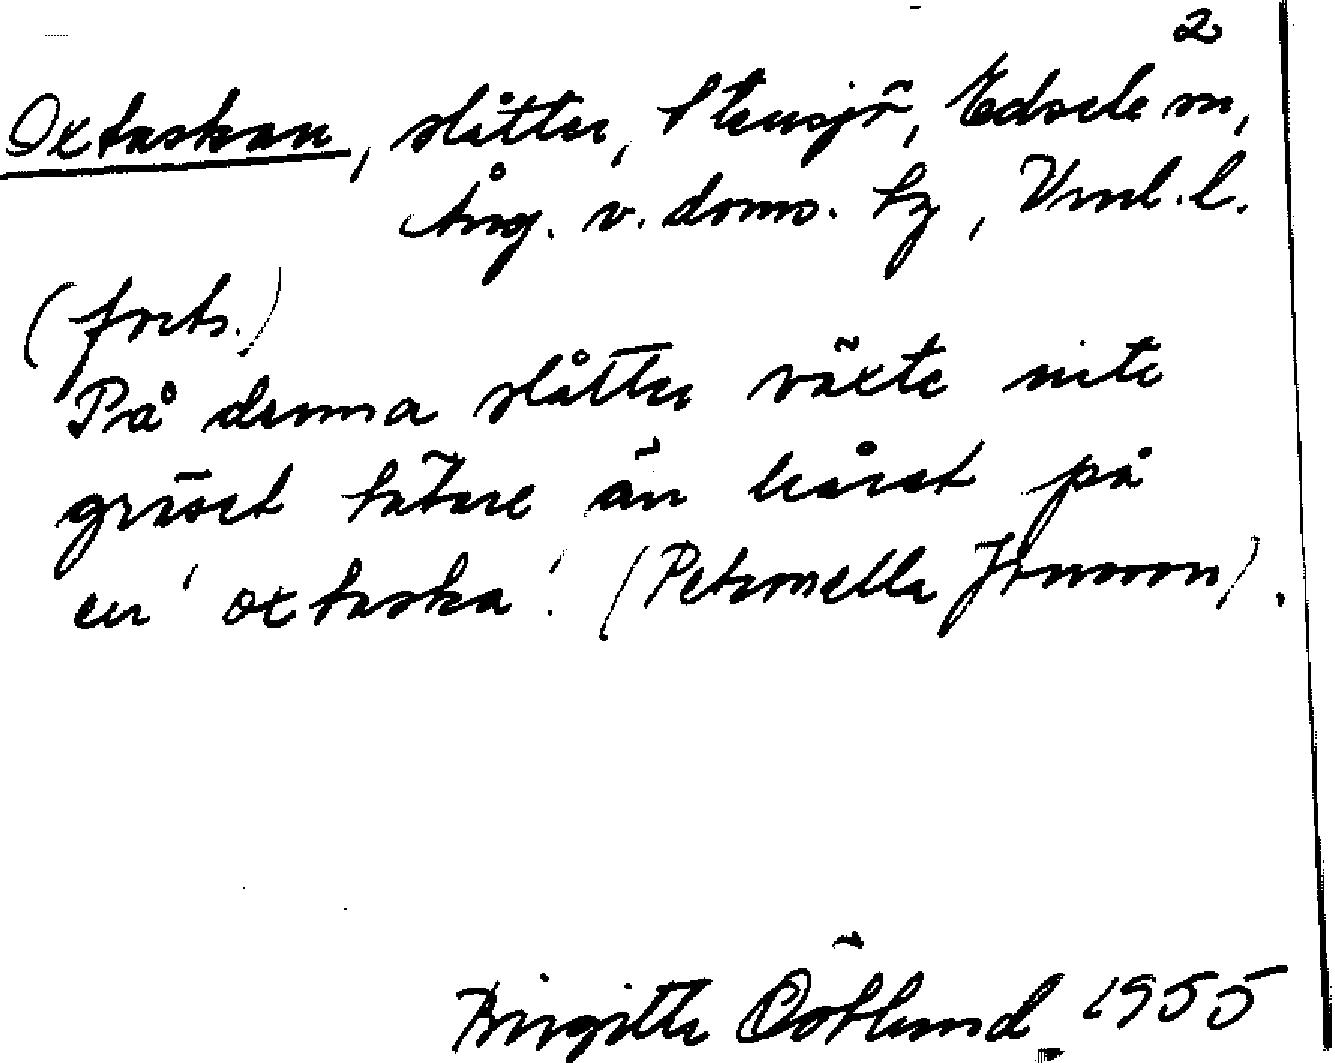 2
Oxtaskan, slåtter, Stensjö, Edsele sn,
Ång. v. doms. tg, Vnl. l.
(forts.)
På denna slåtter växte inte
gräset tätare än håret på
en 'oxtaska'. (Petronella Jonsson).
Birgitta Östlund 1955